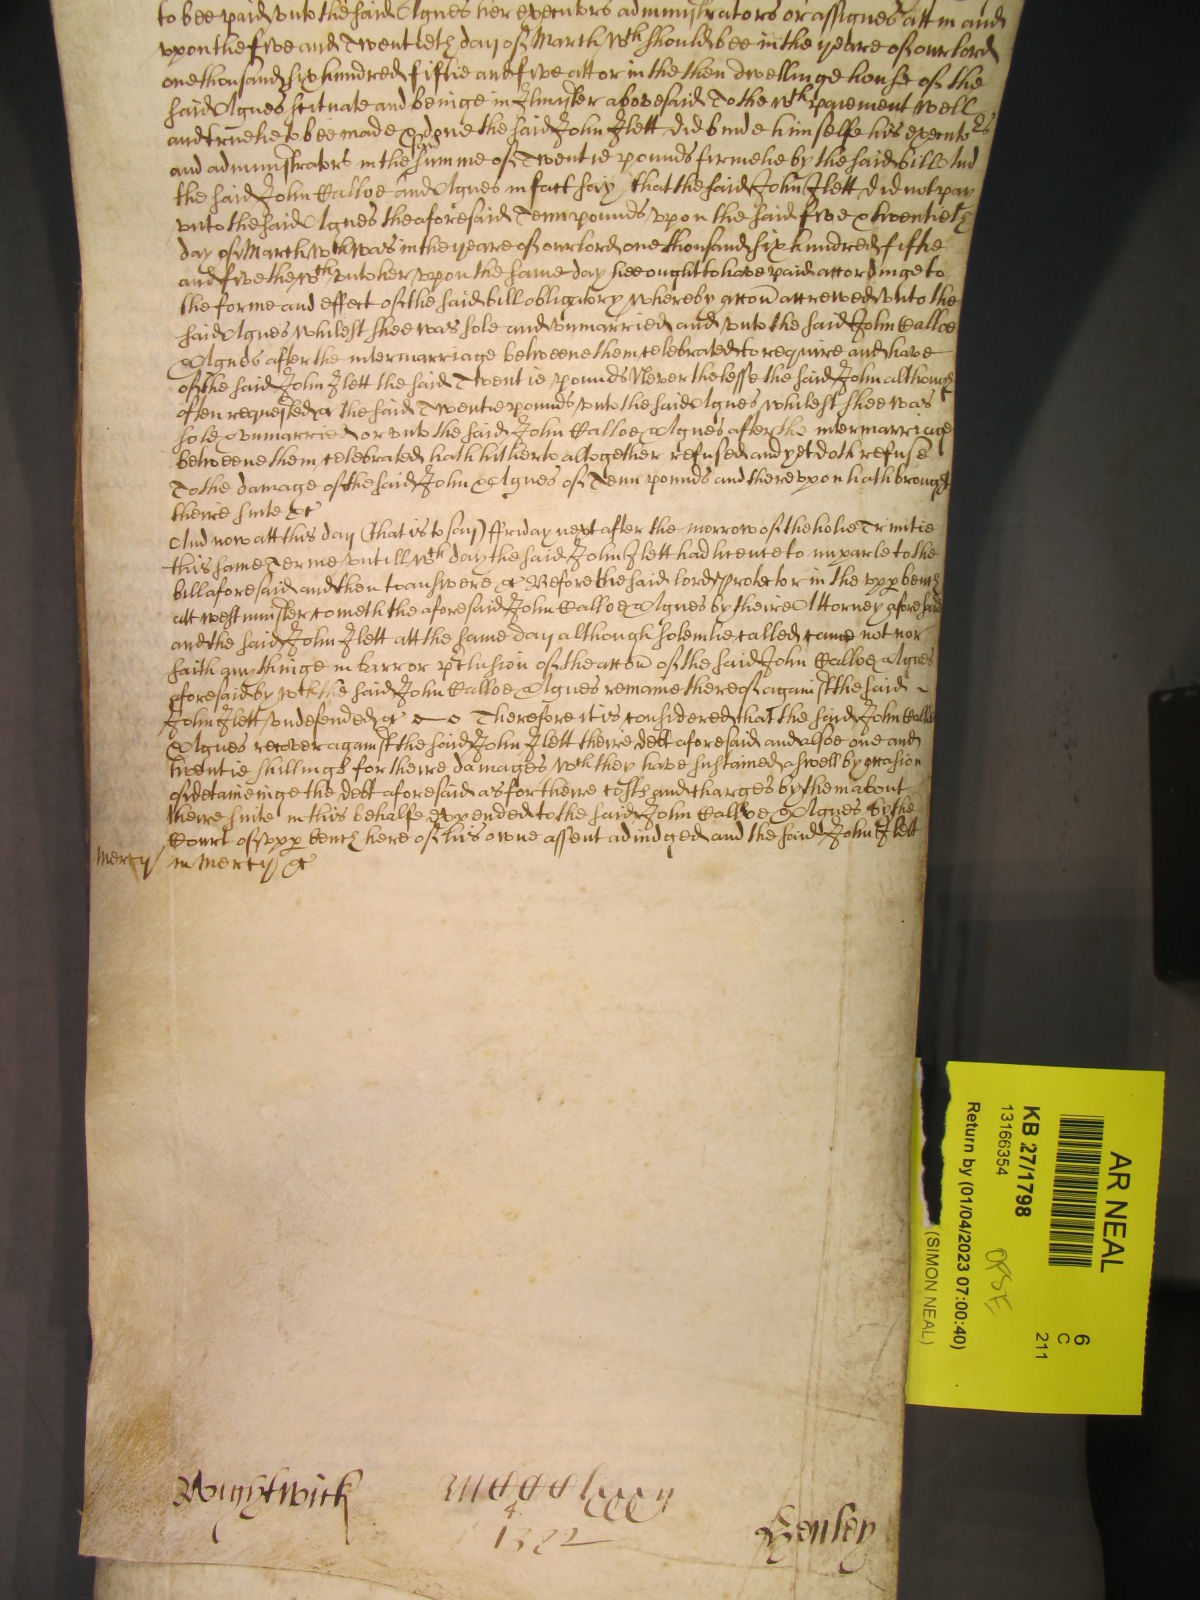 to bee paid vnto the said Agnes her executors administrators or assignes att in and
vpon the five and Twentieth day of March wch should bee in the yeare of our lord
one thousand six hundred fiftie and five att or in the then dwellinge house of the
said Agnes scituate and beinge in Ilmister abovesaid To the wch paiement well
and truelie to bee made & done the said John Ilett did binde himselfe his executors
and administrators in the said summe of Twentie pounds firmelie by the said bill And
the said John Calloe and Agnes in fact say that the said John Ilett did not pay
vnto the said Agnes the aforesaid Tenn pounds vpon the said five & twentieth
day of March wch was in the yeare of our lord one thousand six hundred fiftie
and five the wch vnto her vpon the same day hee ought to have paid accordinge to
the forme and effect of the said bill obligatory whereby accon accrewed vnto the
said Agnes whilest shee was sole and vnmarried and vnto the said John Calloe
& Agnes after the intermarriage betweene them celebrated to require and have
of the said John Ilett the said Twentie pounds Neverthelesse the said John although
often requested &c the said Twentie pounds vnto the said Agnes whilest shee was
sole & vnmarried or vnto the said John Calloe & Agnes after the intermarriage
betweene them celebrated hath hitherto altogether refused and yet doth refuse
To the damage of the said John & Agnes of Tenn pounds and therevpon hath brought
theire suite &c
And now att this day (that is to say) ffriday next after the morrow of the holie Trinitie
this same Terme vntill wch day the said John Ilett had licence to imparle to the
bill aforesaid and then to answere &c Before the said lord protector in the vpp bench
att westminster cometh the aforesaid John Calloe & Agnes by theire Attorney aforesaid
and the said John Ilett att the same day although solemlie called came not nor
saith any thinge in barr or pclusion of the accon of the said John Calloe & Agnes
aforesaid by wch the said John Calloe & Agnes remaine thereof against the said
John Ilett vndefended &c Therefore it is considered that the said John Calloe
& Agnes recover against the said John Ilett theire debt aforesaid and alsoe one and
twentie shillings for theire damages wch they have sustained aswell by occasion
of deteininge the debt aforesaid as for theire costs and charges by them about
theire suite in this behalfe expended to the said John Calloe & Agnes by the
Court of vpp bench here of his owne assent adiudged and the said John Ilett
Mercy in Mercy &c
Wightwick
4
1322
Henley
AR NEAL
6
C
211
KB 27/1798
13166354
Return by (01/04/2023 07:00:40)
(SIMON NEAL)